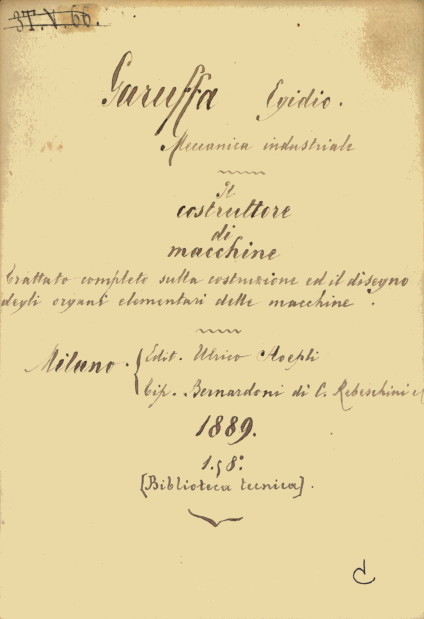 3T.V.66.
Garuffa Egidio.
Meccanica industriale
Il
costruttore
di
macchine
Trattato completo sulla costruzione ed il disegno
degli organi elementari delle macchine.
Milano. { Edit. Ulrico Hoepli
Tip. Bernardoni di C. Rebeschini e
1889.
[Biblioteca tecnica].
C